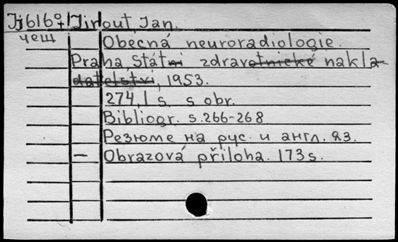 Jirout, Jan.
чеш
Obecná neuroradiologie.
Praha Státní zdravotnické nakla-
datelství, 1953.
274,1 s. s obr.
Bibliogr. s.266-268
Резюме на рус. и англ. яз.
— Obrazová příloha. 173 s.